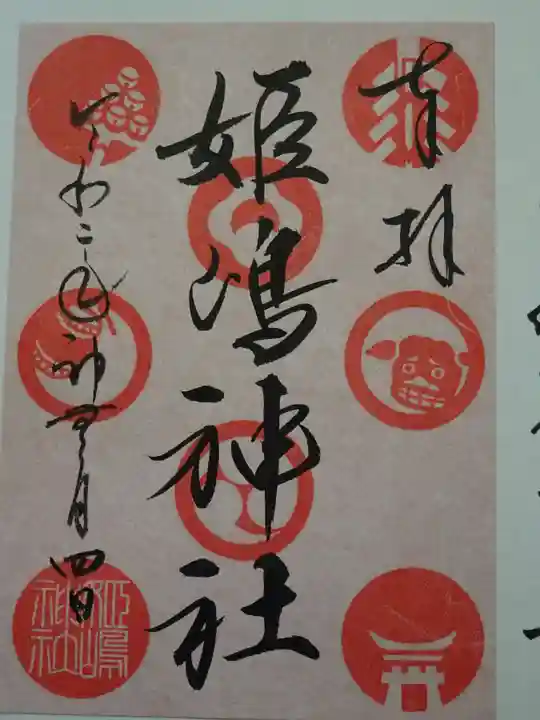 奉拝
姫嶋神社
令和二年神無月四日
姫嶋
神社